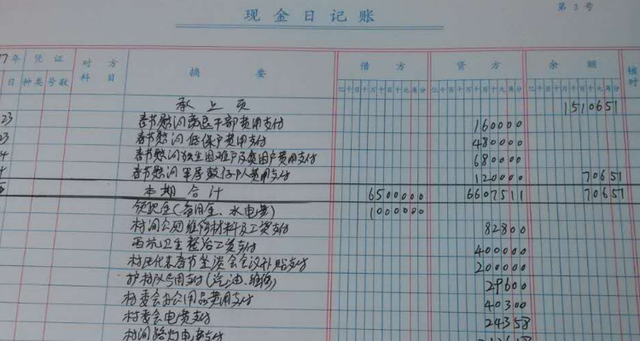 现金日记账
第 3 号
7年 凭证 对方科目 摘要 借方 贷方 余额 核对
日 种类 号数 亿千百十万千百十元角分 亿千百十万千百十元角分 亿千百十万千百十元角分
承上页 1510651
23 春节慰问 干部费用支付 160000
23 春节慰问低保户费用支付 480000
4 春节慰问 困难户及 户费用支付 680000
4 春节慰问军属 人费用支付 120000 70651
本期合计 6500000 6607511 70651
备用金、水电费) 1000000
村间公园维修材料及工资支付 82800
卫生整治工资支付 400000
村民代表春节座谈会会议补贴支付 200000
护村队费用支付(汽油、维修) 29600
村委会办公用品费用支付 40300
村委会电费支付 24358
村间路灯电费支付